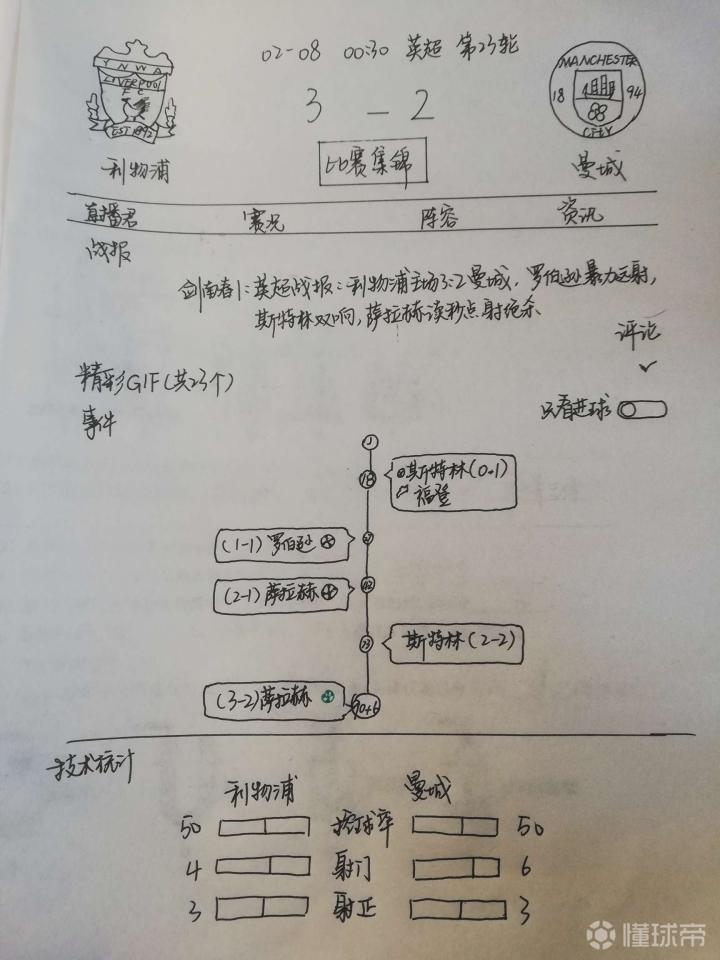 02-08 00:30 英超 第23轮
YNWA
LIVERPOOL
FC
EST 1892
MANCHESTER
18 94
CITY
3 - 2
利物浦
比赛集锦
曼城
直播君 赛况 阵容 资讯
战报
剑南春|:英超战报:利物浦主场3:2曼城,罗伯逊暴力远射,
斯特林双响,萨拉赫读秒点射绝杀
评论
精彩GIF(共23个)
事件
只看进球
18
斯特林(0-1)
福登
(1-1)罗伯逊
(2-1)萨拉赫
斯特林(2-2)
(3-2)萨拉赫
90+6
技术统计
利物浦 曼城
50 控球率 50
4 射门 6
3 射正 3
懂球帝